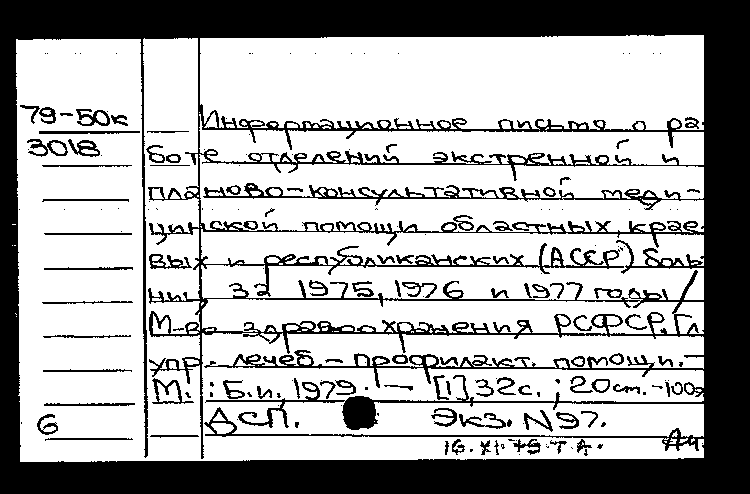 79-50к
3018
Информационное письмо о ра-
боте отделений экстренной и
планово-консультативной меди-
цинской помощи областных, крае-
вых и республиканских (АССР) боль-
ниц за 1975, 1976 и 1977 годы /
М-во здравоохранения РСФСР. Гл.
упр. лечеб.-профилакт. помощи. -
М. : Б.и., 1979. - [1], 32с. ; 20см. -100э
6 ДСП. Экз. N 97.
16.XI.79 Т А.